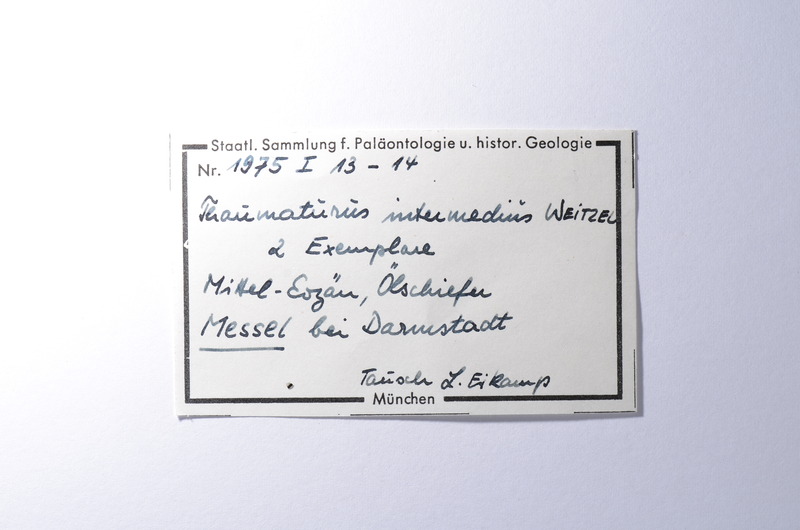 Staatl. Sammlung f. Paläontologie u. histor. Geologie
Nr. 1975 I 13 - 14
Thaumaturus intermedius WEITZEL
2 Exemplare
Mittel-Eozän, Ölschiefer
Messel bei Darmstadt
Tausch H. Eikamp
München